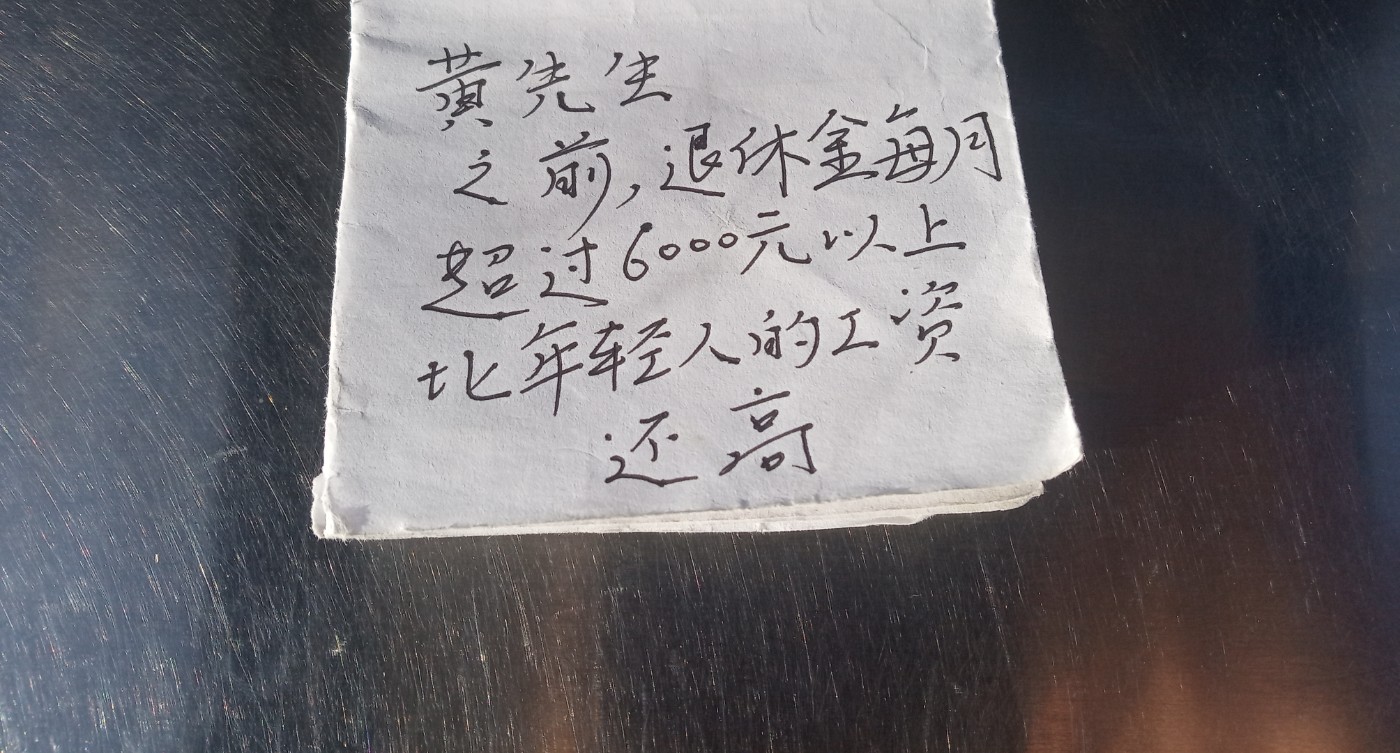 黄先生
之前,退休金每月
超过6000元以上
比年轻人的工资
还高